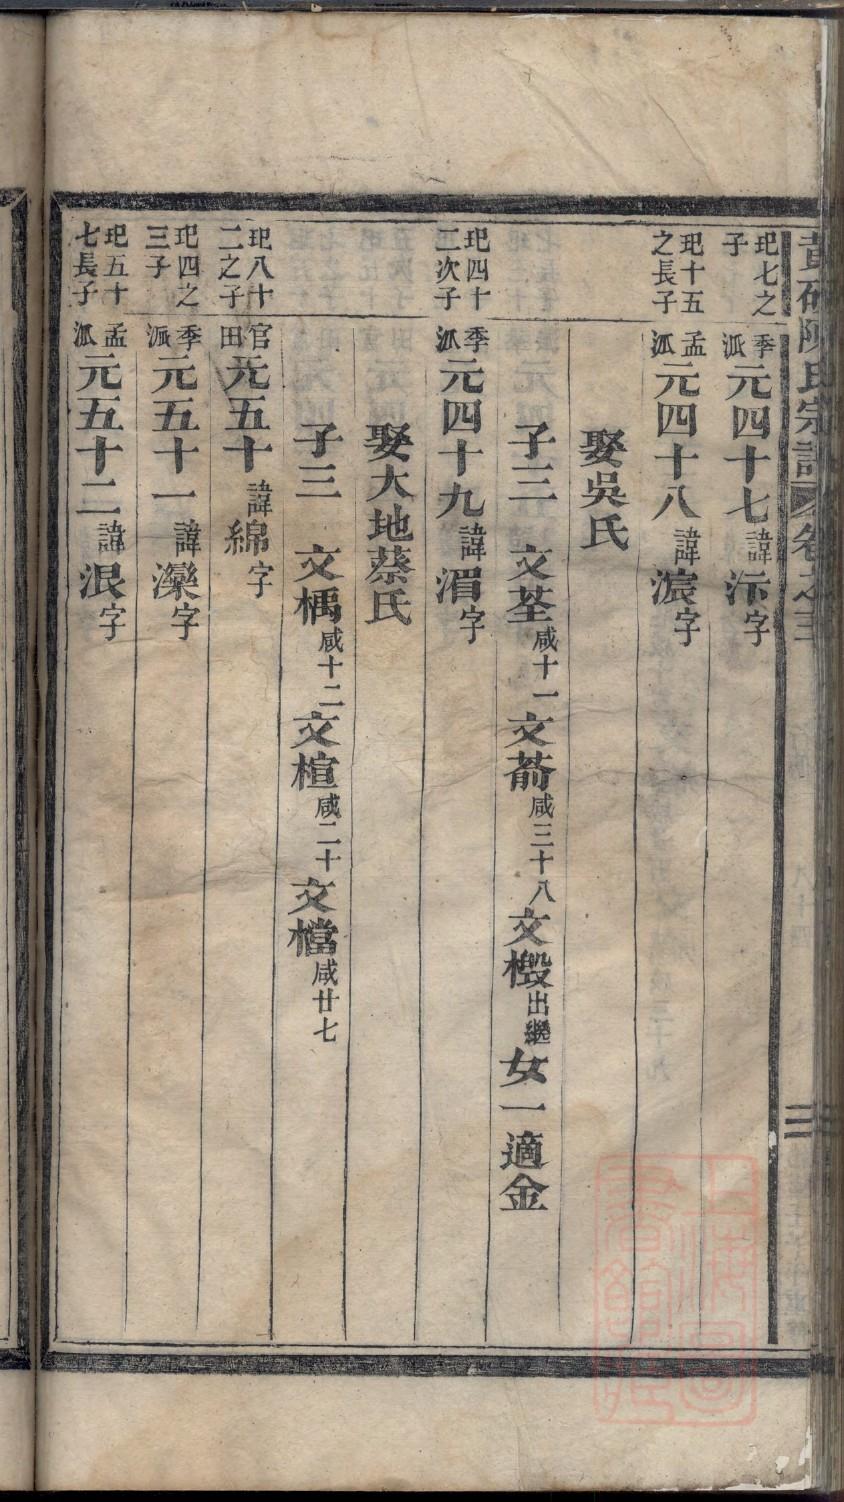 黄砠陳氏宗譜 卷之三
玘七之子 季派 元四十七 諱沶字
玘十五之長子 孟派 元四十八 諱浪字
娶吳氏
子三 文荃 咸十一 文萮 咸三十八 文檓 出繼 女一適金
玘四十二次子 季派 元四十九 諱湄字
娶大地蔡氏
子三 文楀 咸十二 文楦 咸二十 文檔 咸廿七
玘八十二之子 官田 元五十 諱綿字
玘四之三子 季派 元五十一 諱灤字
玘五十七長子 孟派 元五十二 諱泿字
上海圖書館藏